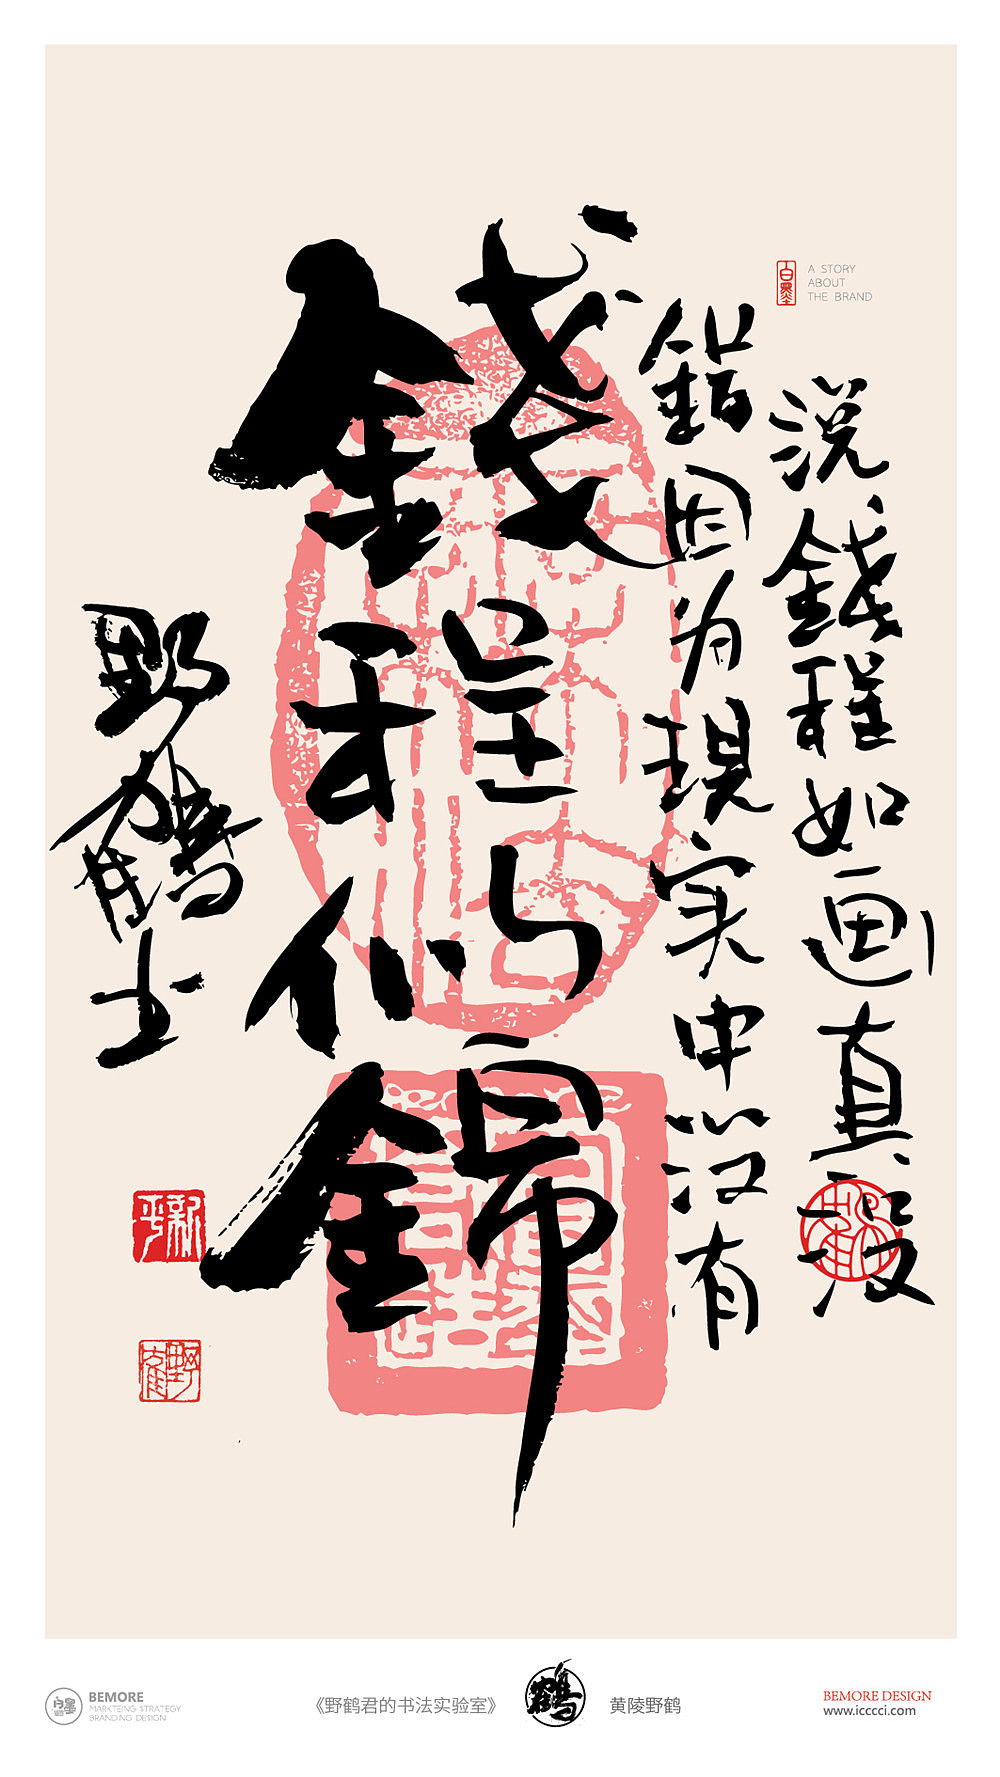 A STORY
ABOUT
THE BRAND
白墨
说錢程如画真没
錯因为現实中没有
錢程似錦
野鶴士
新平
野鶴
BEMORE
MARKTEING STRATEGY
BRANDING DESIGN
《野鹤君的书法实验室》
鶴
黄陵野鹤
BEMORE DESIGN
www.icccci.com